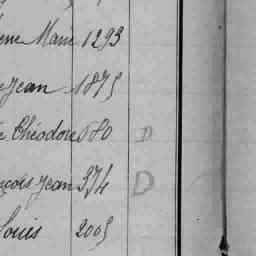 Marie 1293
Jean 1875
Théodore 680 D
nçois Jean 374 D
Louis 2005